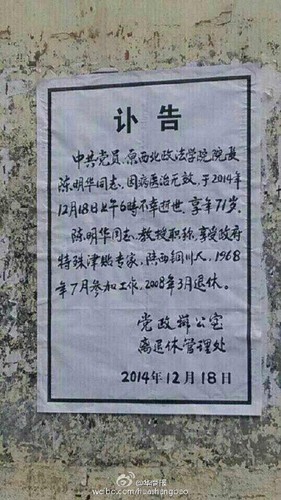 讣告
中共党员、原西北政法学院院长
陈明华同志，因病医治无效，于2014年
12月18日上午6時不幸逝世，享年71岁。
陈明华同志，教授职称，享受政府
特殊津贴专家，陕西铜川人，1968
年7月参加工作，2008年3月退休。
党政办公室
离退休管理处
2014年12月18日
weibo.com/huashangbao